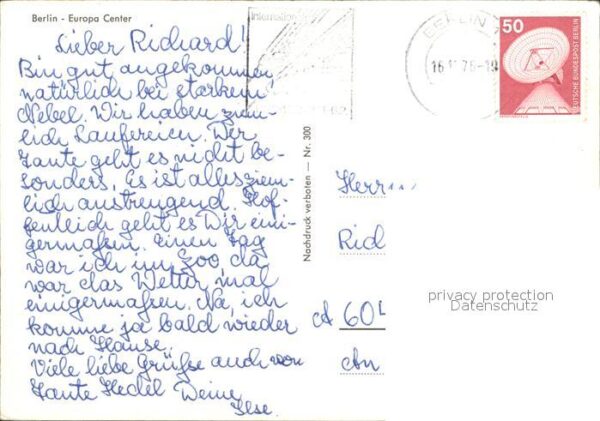 Berlin - Europa Center
Lieber Richard!
Bin gut angekommen,
natürlich bei starkem
Nebel. Wir haben ziem-
lich Laufereien. Der
Tante geht es nicht be-
sonders. Es ist alles ziem-
lich anstrengend. Hof-
fentlich geht es Dir eini-
germaßen. Einen Tag
war ich im Zoo da
war das Wetter mal
einigermaßen. Na, ich
komme ja bald wieder
nach Hause.
Viele liebe Grüße auch von
Tante Hedel Deine
Ilse.
Nachdruck verboten — Nr. 300
Internation
BERLIN
50
DEUTSCHE BUNDESPOST BERLIN
Herrn
Rid
privacy protection
Datenschutz
d 60
An